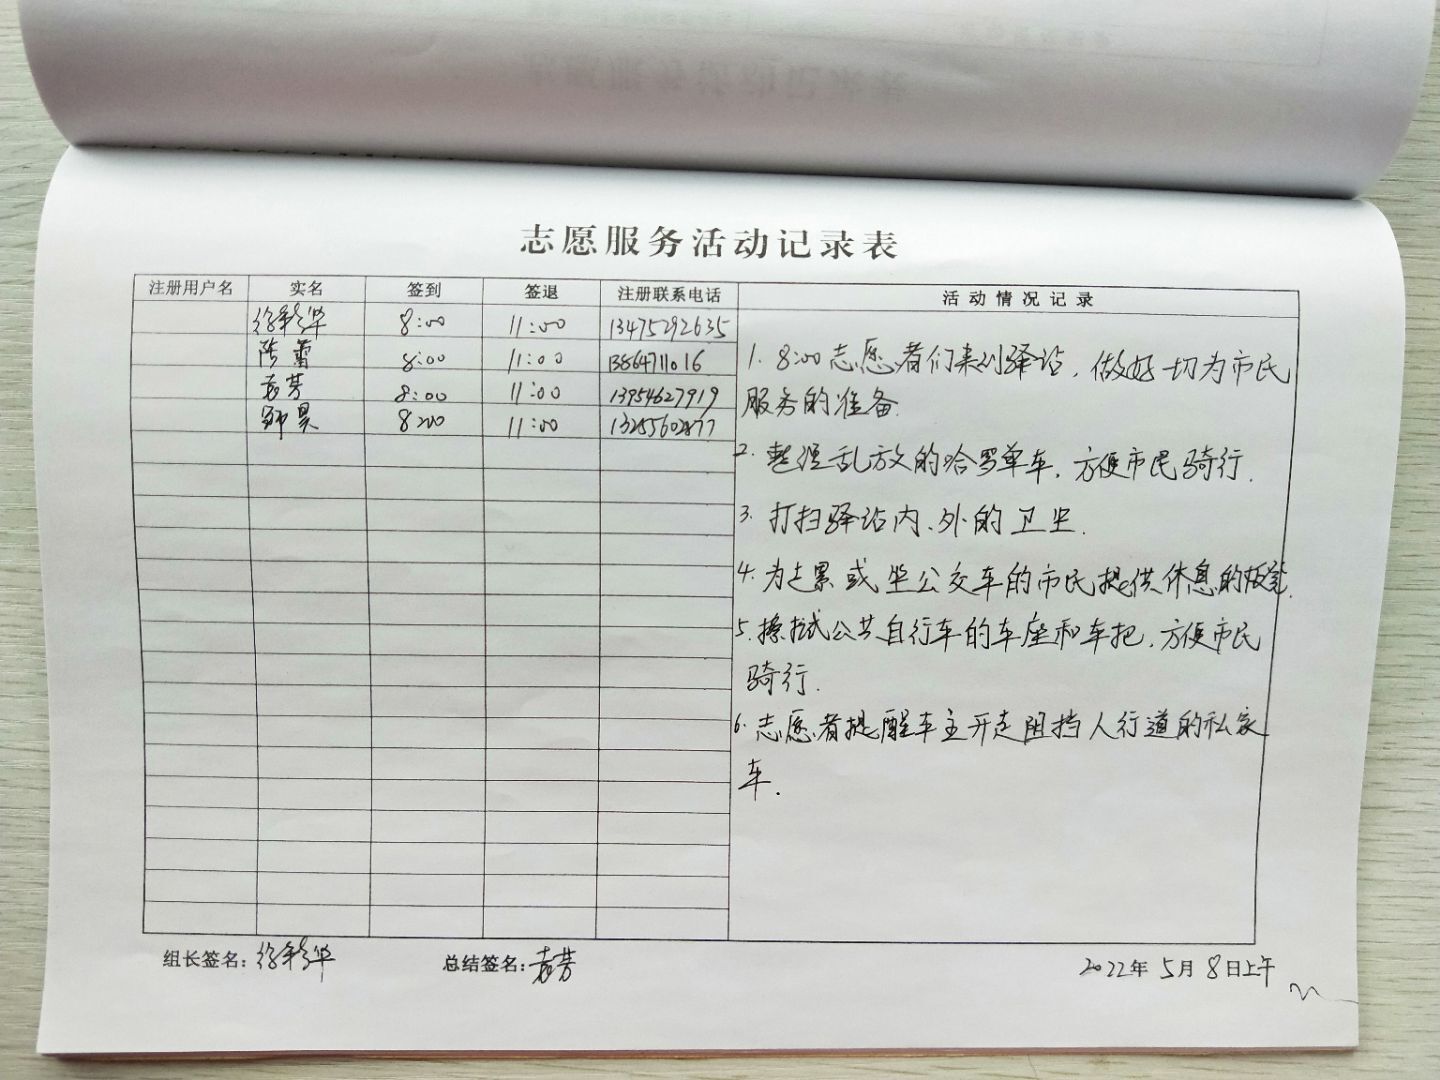 志愿服务活动记录表
注册用户名 实名 签到 签退 注册联系电话 活动情况记录
徐彩华 8:00 11:00 13475292635
陈蕾 8:00 11:00 13864711016
袁芳 8:00 11:00 13954627919
昊 8:00 11:00
1. 8:00志愿者们来到驿站，做好一切为市民
服务的准备.
2. 整理乱放的哈罗单车，方便市民骑行.
3. 打扫驿站内、外的卫生.
4. 为走累或坐公交车的市民提供休息的板凳.
5. 擦拭公共自行车的车座和车把，方便市民
骑行.
6. 志愿者提醒车主开走阻挡人行道的私家
车.
组长签名：徐彩华 总结签名：袁芳 2022年5月8日上午